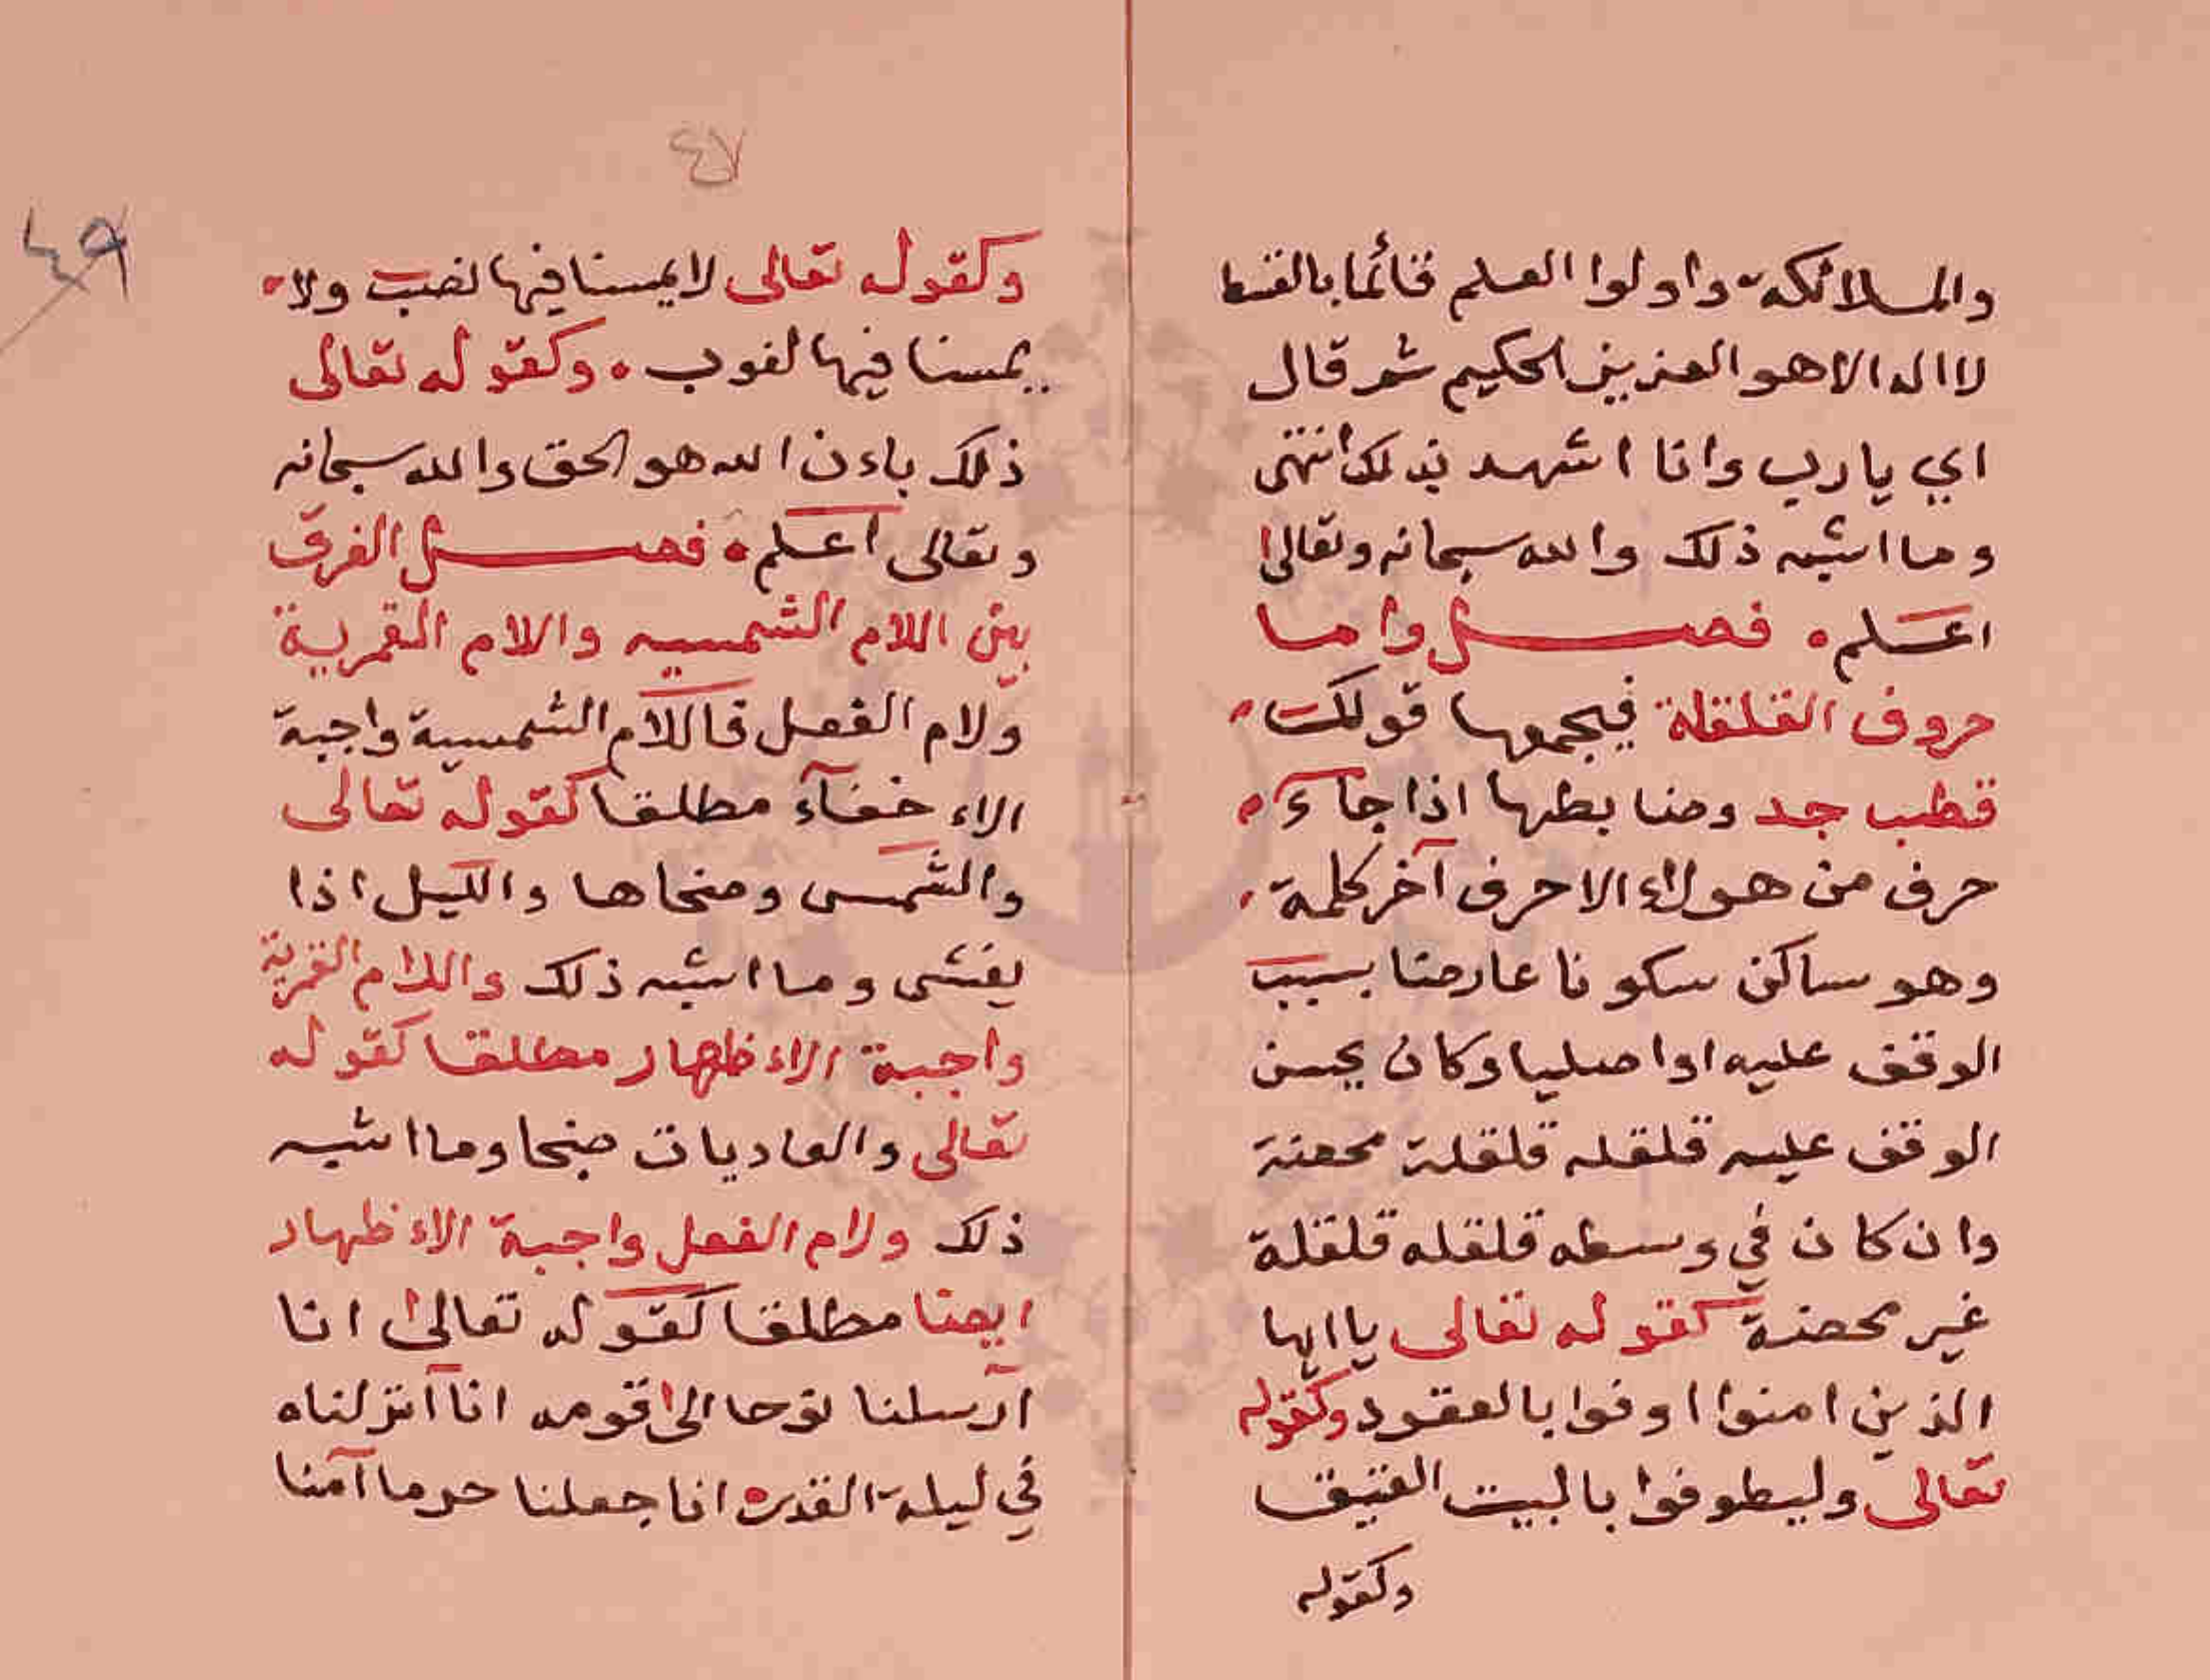 والملائكة واولوا العلم قائما بالقسط
لا اله الا هو العزيز الحكيم ثم قال
اي يا رب وانا اشهد بذلك انتهى
وما اشبه ذلك والله سبحانه وتعالى
اعلم فصل واما
حروف القلقلة فيجمعها قولك
قطب جد وضابطها اذا جاء
حرف من هولاء الاحرف آخر كلمة
وهو ساكن سكونا عارضا بسبب
الوقف عليه او اصليا وكان يحسن
الوقف عليه قلقله قلقلة محضة
وان كان في وسطه قلقله قلقلة
غير محضة كقوله تعالى يا ايها
الذين امنوا اوفوا بالعقود وكقوله
تعالى وليطوفوا بالبيت العتيق
وكقوله
٤٧
٤٩
وكقوله تعالى لا يمسنا فيها نصب ولا
يمسنا فيها لغوب وكقوله تعالى
ذلك باءن الله هو الحق والله سبحانه
وتعالى اعلم فصل الفرق
بين اللام الشمسيه والام القمرية
ولام الفعل فاللام الشمسية واجبة
الاء خفآء مطلقا كقوله تعالى
والشمس وضحاها والليل اذا
يغشى وما اشبه ذلك واللام القمرية
واجبة الاء ظهار مطلقا كقوله
تعالى والعاديات ضبحا وما اشبه
ذلك ولام الفعل واجبة الاء ظهار
ايضا مطلقا كقوله تعالى انا
ارسلنا نوحا الى قومه انا انزلناه
في ليلة القدر انا جعلنا حرما آمنا